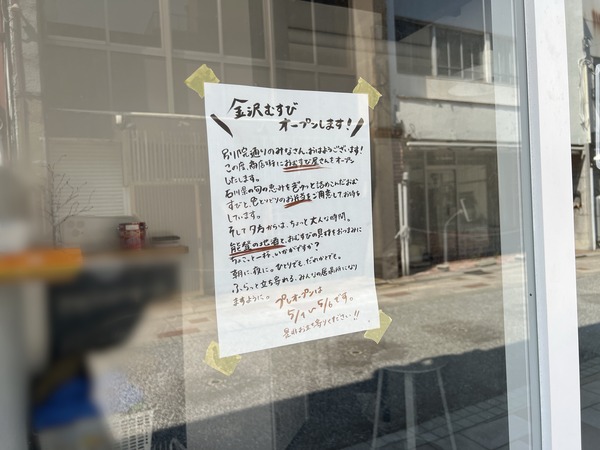 金沢むすび
オープンします!
別院通りのみなさん、おはようございます!
この度、商店街におむすび屋さんをオープン
いたします。
石川県の旬の恵みをぎゅっと詰めこんだおむ
すびと、色とりどりのお弁当をご用意してお待ち
しています。
そして夕方からは、ちょっと大人な時間。
能登の地酒と、おむすびの具材をおつまみに
ちょこっと一杯、いかがですか?
朝に、夜に。ひとりでも、だれかとでも。
ふらっと立ち寄れる、みんなの居場所になり
ますように。
プレオープンは
5/1〜5/6です。
是非お立ち寄りください!!